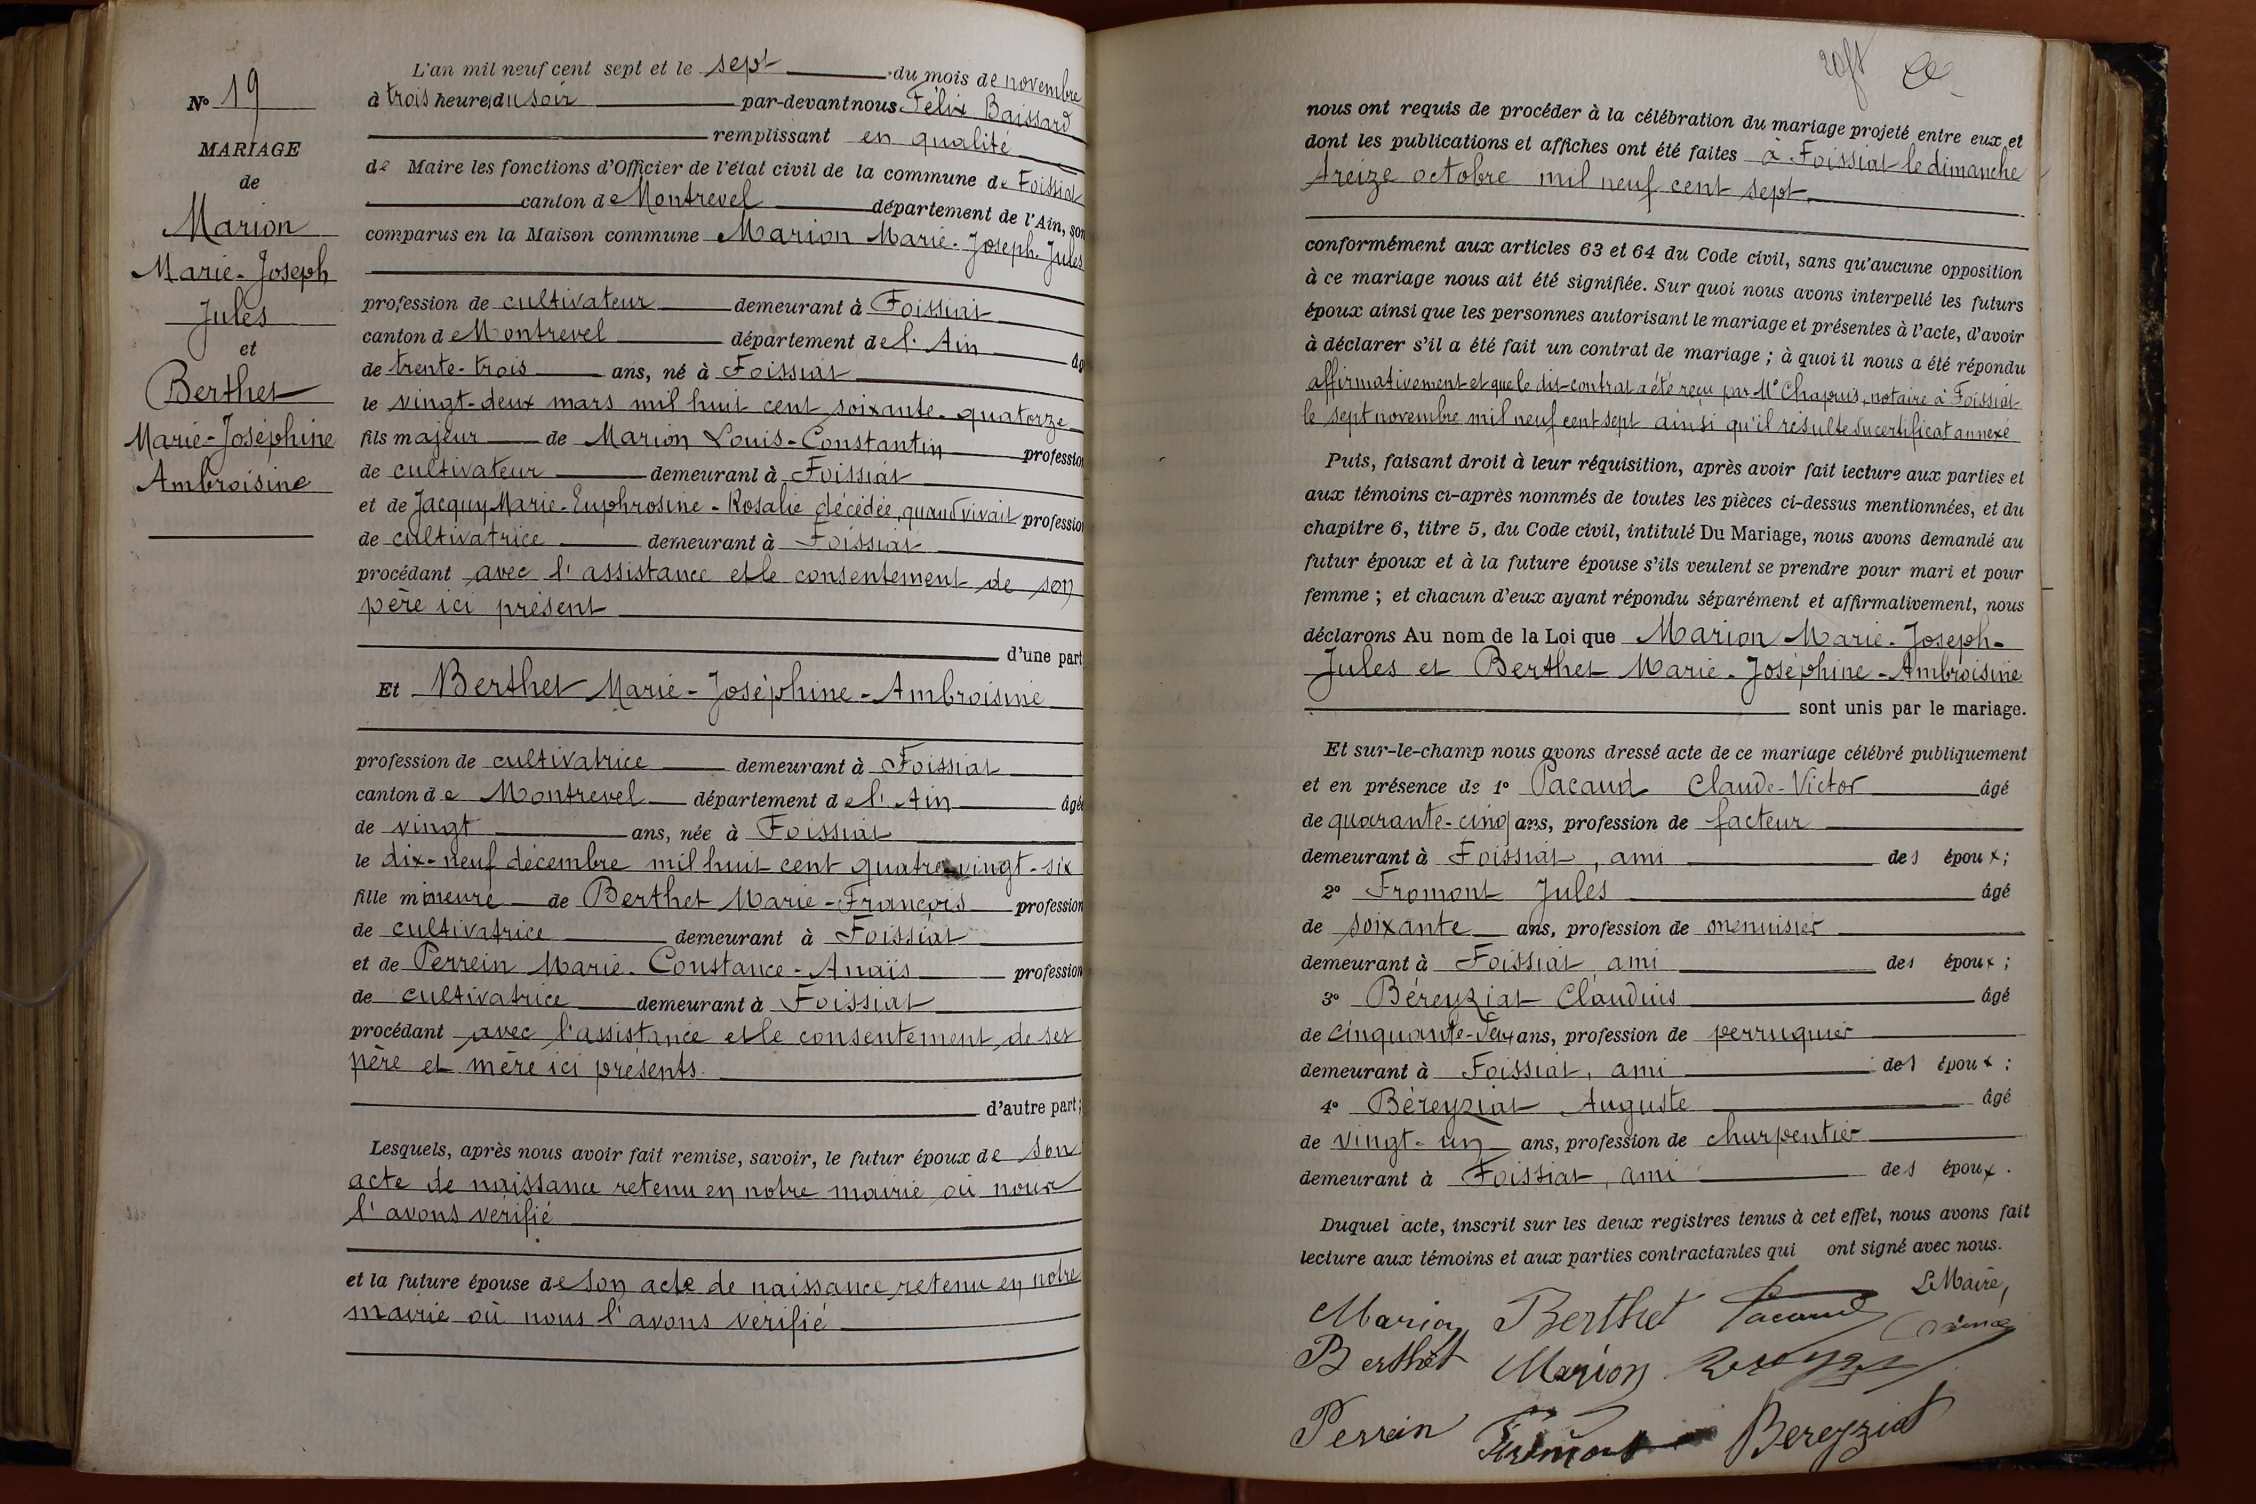 N° 19
MARIAGE
de
Marion
Marie-Joseph
Jules
et
Berthet
Marie-Joséphine
Ambroisine
L'an mil neuf cent sept et le sept du mois de novembre
à trois heures du soir par-devant nous Félix Baissard
remplissant en qualité
de Maire les fonctions d'Officier de l'état civil de la commune de Foissiat
canton de Montrevel département de l'Ain, son
comparus en la Maison commune Marion Marie-Joseph-Jules
profession de cultivateur demeurant à Foissiat
canton de Montrevel département de l'Ain âg
de trente-trois ans, né à Foissiat
le vingt-deux mars mil huit cent soixante-quatorze
fils majeur de Marion Louis-Constantin profession
de cultivateur demeurant à Foissiat
et de Jacquy Marie-Euphrosine-Rosalie décédée, quand vivait profession
de cultivatrice demeurant à Foissiat
procédant avec l'assistance et le consentement de son
père ici présent
d'une part
Et Berthet Marie-Joséphine-Ambroisine
profession de cultivatrice demeurant à Foissiat
canton de Montrevel département de l'Ain âgée
de vingt ans, née à Foissiat
le dix-neuf décembre mil huit cent quatre-vingt-six
fille mineure de Berthet Marie-François profession
de cultivatrice demeurant à Foissiat
et de Perrein Marie-Constance-Anaïs profession
de cultivatrice demeurant à Foissiat
procédant avec l'assistance et le consentement de ses
père et mère ici présents.
d'autre part;
Lesquels, après nous avoir fait remise, savoir, le futur époux de son
acte de naissance retenu en notre mairie où nous
l'avons vérifié
et la future épouse de son acte de naissance retenu en notre
mairie où nous l'avons vérifié
nous ont requis de procéder à la célébration du mariage projeté entre eux et
dont les publications et affiches ont été faites à Foissiat le dimanche
treize octobre mil neuf cent sept.
conformément aux articles 63 et 64 du Code civil, sans qu'aucune opposition
à ce mariage nous ait été signifiée. Sur quoi nous avons interpellé les futurs
époux ainsi que les personnes autorisant le mariage et présentes à l'acte, d'avoir
à déclarer s'il a été fait un contrat de mariage; à quoi il nous a été répondu
affirmativement et que le dit contrat a été reçu par Me Chapuis, notaire à Foissiat
le sept novembre mil neuf cent sept ainsi qu'il résulte du certificat annexé
Puis, faisant droit à leur réquisition, après avoir fait lecture aux parties et
aux témoins ci-après nommés de toutes les pièces ci-dessus mentionnées, et du
chapitre 6, titre 5, du Code civil, intitulé Du Mariage, nous avons demandé au
futur époux et à la future épouse s'ils veulent se prendre pour mari et pour
femme; et chacun d'eux ayant répondu séparément et affirmativement, nous
déclarons Au nom de la Loi que Marion Marie-Joseph-
Jules et Berthet Marie-Joséphine-Ambroisine
sont unis par le mariage.
Et sur-le-champ nous avons dressé acte de ce mariage célébré publiquement
et en présence de 1° Pacaud Claude-Victor âgé
de quarante-cinq ans, profession de facteur
demeurant à Foissiat, ami des époux;
2° Fromont Jules âgé
de soixante ans, profession de menuisier
demeurant à Foissiat, ami des époux;
3° Béreyziat Claudius âgé
de cinquante-deux ans, profession de perruquier
demeurant à Foissiat, ami des époux;
4° Béreyziat Auguste âgé
de vingt-un ans, profession de charpentier
demeurant à Foissiat, ami des époux.
Duquel acte, inscrit sur les deux registres tenus à cet effet, nous avons fait
lecture aux témoins et aux parties contractantes qui ont signé avec nous.
Le Maire,
Marion Berthet Pacaud
Berthet Marion
Perrein Fromont Bereyziat